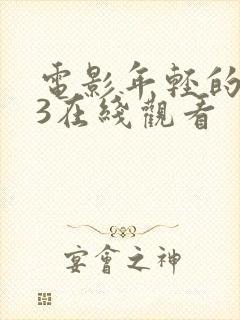 電影年輕的
3在綫觀看
宴會之神